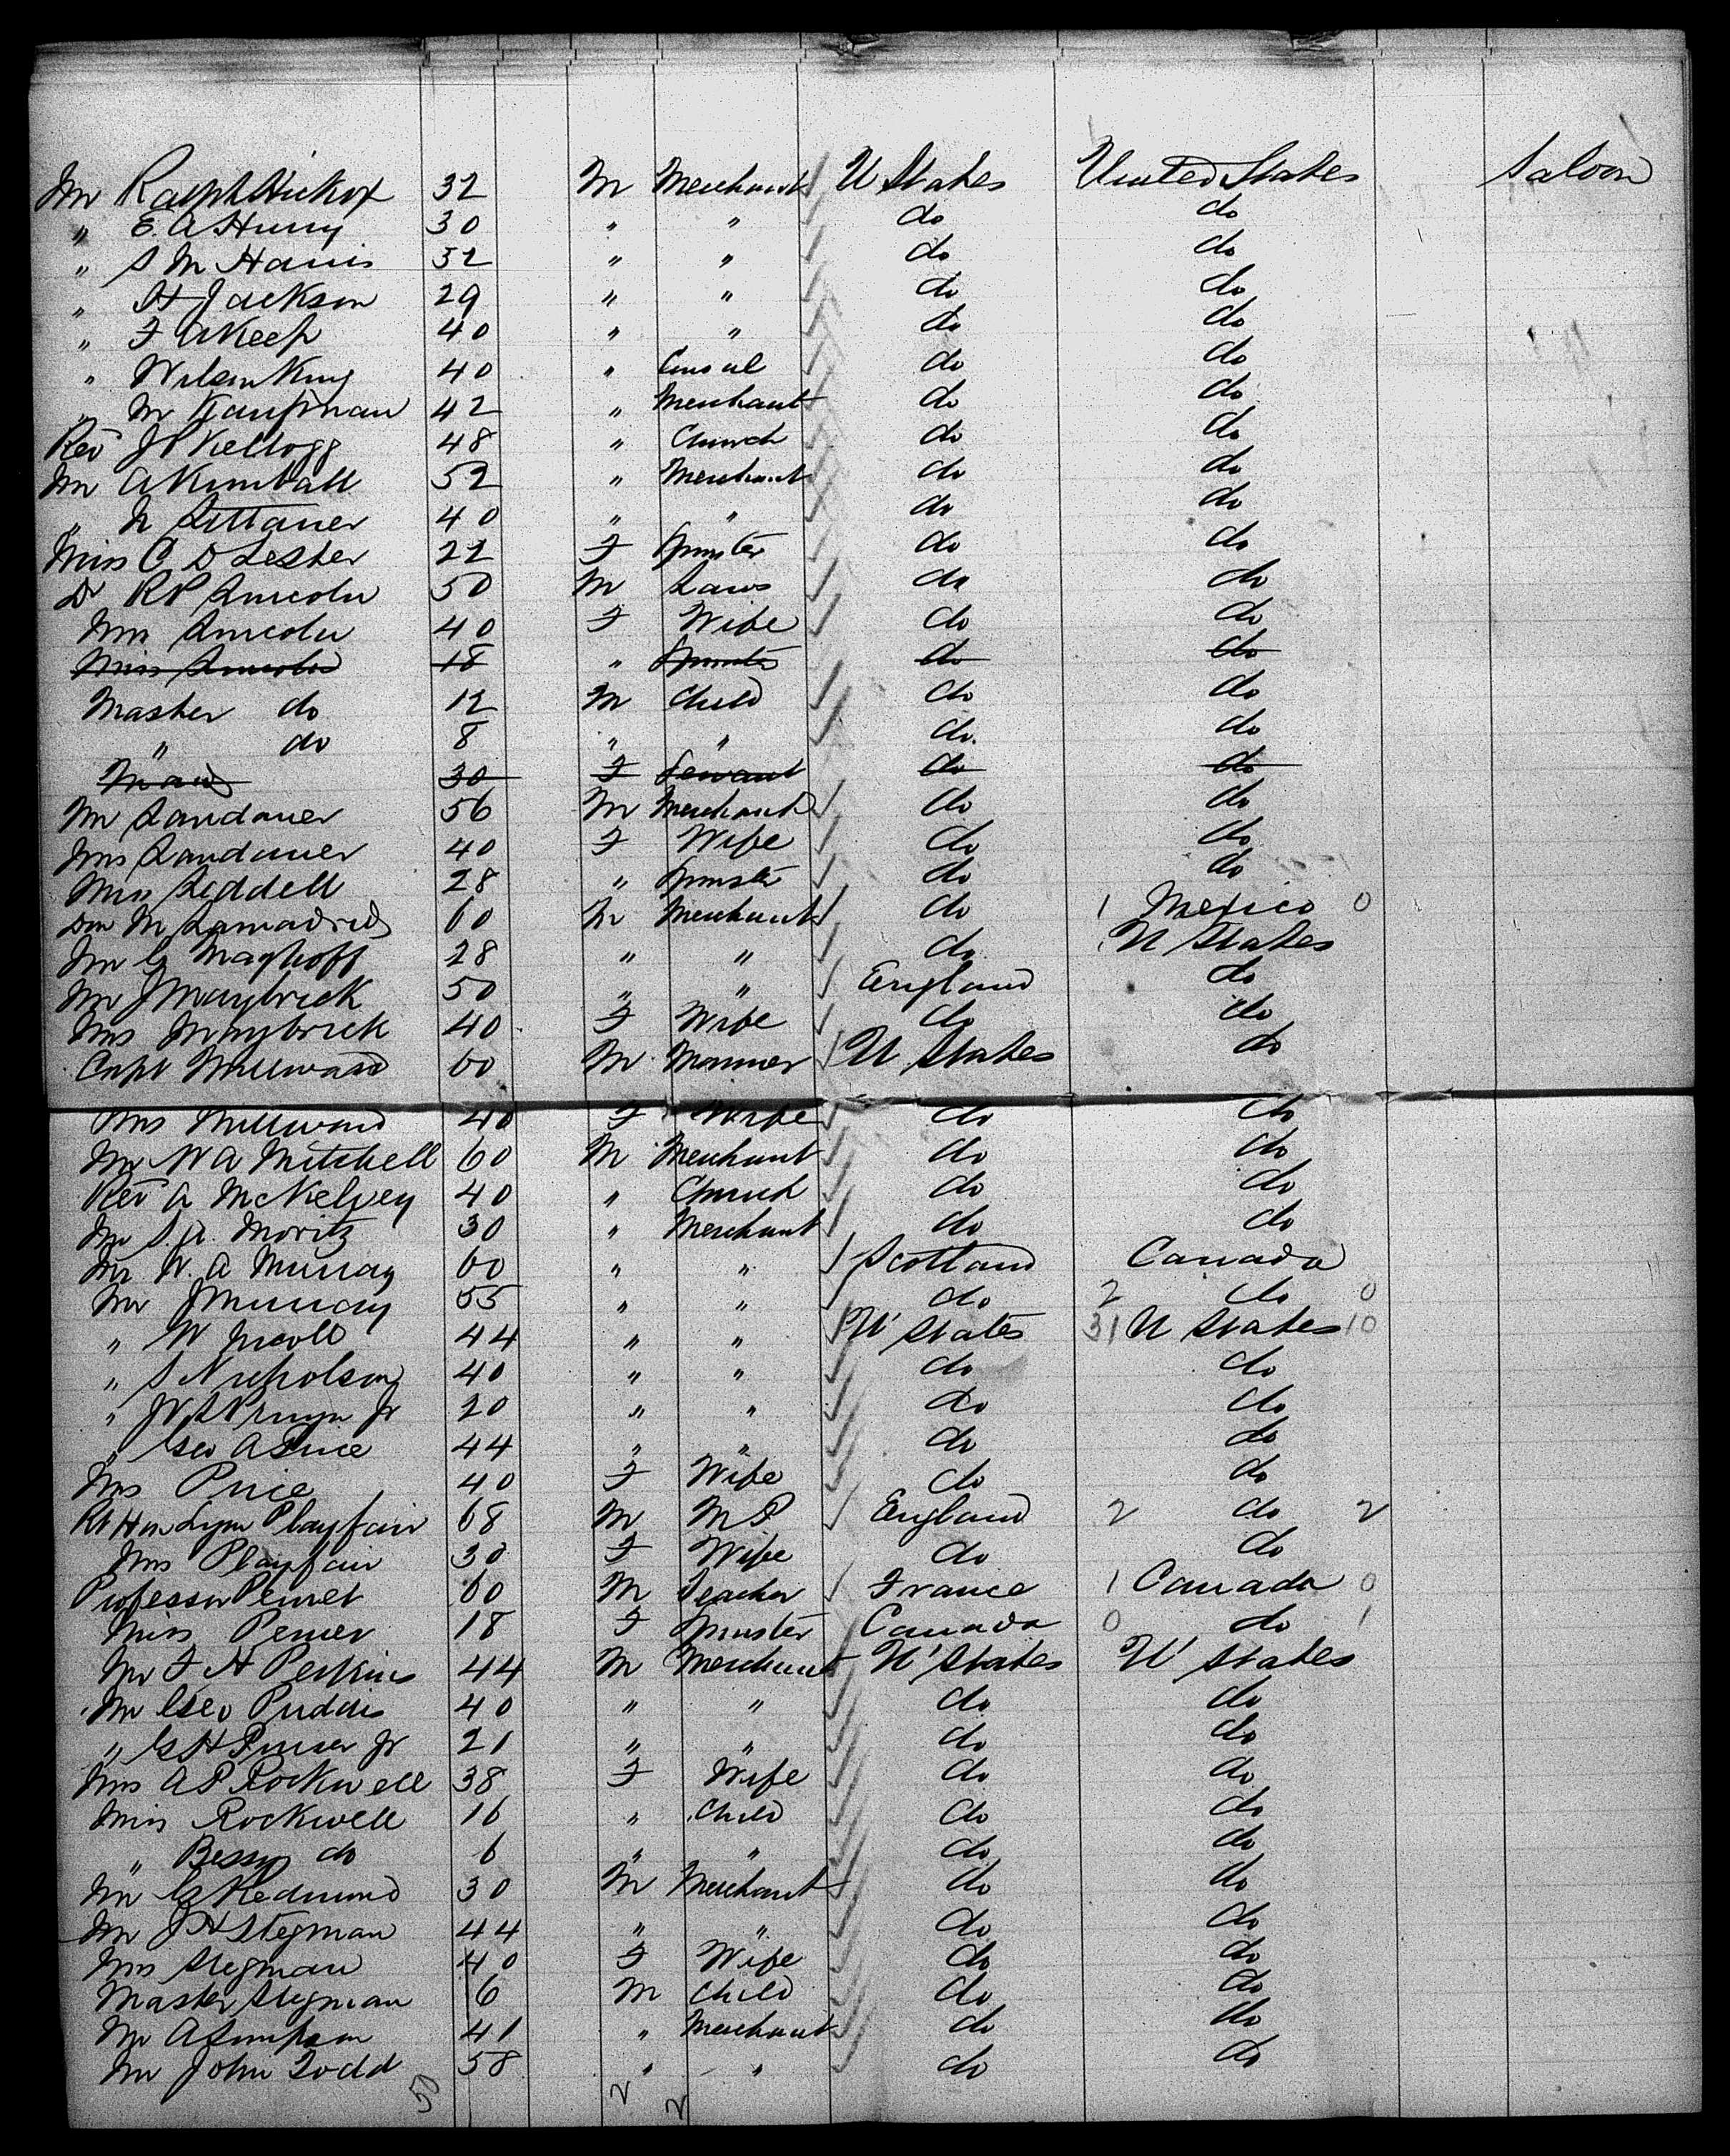 Mr Ralph Hickox 32 M Merchant U States United States Saloon
" E. A Hurry 30 " " do do
" S M Harris 32 " " do do
" H Jackson 29 " " do do
" F A Keep 40 " " do do
" Wilson King 40 " Consul do do
" M Kaufman 42 " Merchant do do
Rev J P Kellogg 48 " Church do do
Mr A Kimball 52 " Merchant do do
" N Littauer 40 " " do do
Miss C D Lester 22 F Spinster do do
Dr R P Lincoln 50 M Laws do do
Mrs Lincoln 40 F Wife do do
Miss Lincoln 18 " Spinster do do
Master do 12 M Child do do
" do 8 " " do do
Maid 30 F Servant do do
Mr Landauer 56 M Merchant do do
Mrs Landauer 40 F Wife do do
Miss Leddell 28 " Spinster do do
Don M Lamadrid 60 M Merchant do 1 Mexico 0
Mr G Maghoff 28 " " do U States
Mr J Maybrick 50 " " England do
Mrs Maybrick 40 F Wife do do
Capt Millward 60 M Marriner U States do
Mrs Millward 40 F Wife do do
Mr W A Mitchell 60 M Merchant do do
Rev A McKelvey 40 " Church do do
Mr S. Moritz 30 " Merchant do do
Mr W. A Murray 60 " " Scotland Canada
Mr J Murray 55 " " do 2 do 0
" W Nicoll 44 " " U States 31 U States 10
" S Nicholson 40 " " do do
" J V S Pruyn Jr 20 " " do do
" Geo A Price 44 " " do do
Mrs Price 40 F Wife do do
Rt Hon Lyon Playfair 68 M M P England 2 do 2
Mrs Playfair 30 F Wife do do
Professor Pernet 60 M Teacher France 1 Canada 0
Miss Pernet 18 F Spinster Canada 0 do 1
Mr F H Perkins 44 M Merchant U States U States
Mr Geo Puddis 40 " " do do
" G H Jr 21 " " do do
Mrs A P Rockwell 38 F Wife do do
Miss Rockwell 16 " Child do do
" Bessy do 6 " " do do
Mr G Redmond 30 M Merchant do do
Mr J H Stegman 44 " " do do
Mrs Stegman 40 F Wife do do
Master Stegman 6 M Child do do
Mr A Simpson 41 " Merchant do do
Mr John Todd 58 " " do do
50 2 2